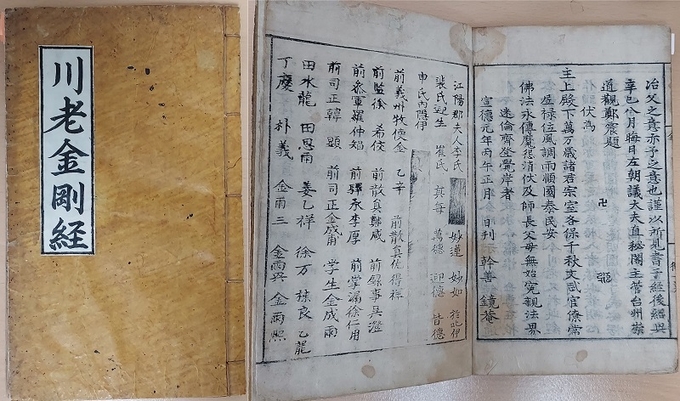 川老金剛經
冶父之意亦予之意也謹以所見書于經後紹興
辛巳八月晦日左朝議大夫直秘閣主管台州崇
道觀鄭震題
伏為 卍
主上殿下萬萬歲諸君宗室各保千秋文武官僚常
盈祿位風調雨順國泰民安
佛法永傳魔怨消伏及師長父母無始冤親法界
迷倫齊登覺岸者
宣德元年丙午正月 日刊 幹善 鏡菴
江陽郡夫人李氏 妙蓮 妙如
裴氏 崔氏 萬德 迎德 皆德
申氏內隱伊
前義州牧使金 乙辛 前散員
前監後 希佼 前散員鄭咸 前錄事吳澄
前叅軍羅仲 前驛丞李厚 前掌漏徐仁用
前司正韓 顯 前司正金成甫 學生金成雨
田水龍 田思南 姜乙祥 徐万 林良 乙龍
丁慶 朴義 金雨三 金雨吳 金雨熙